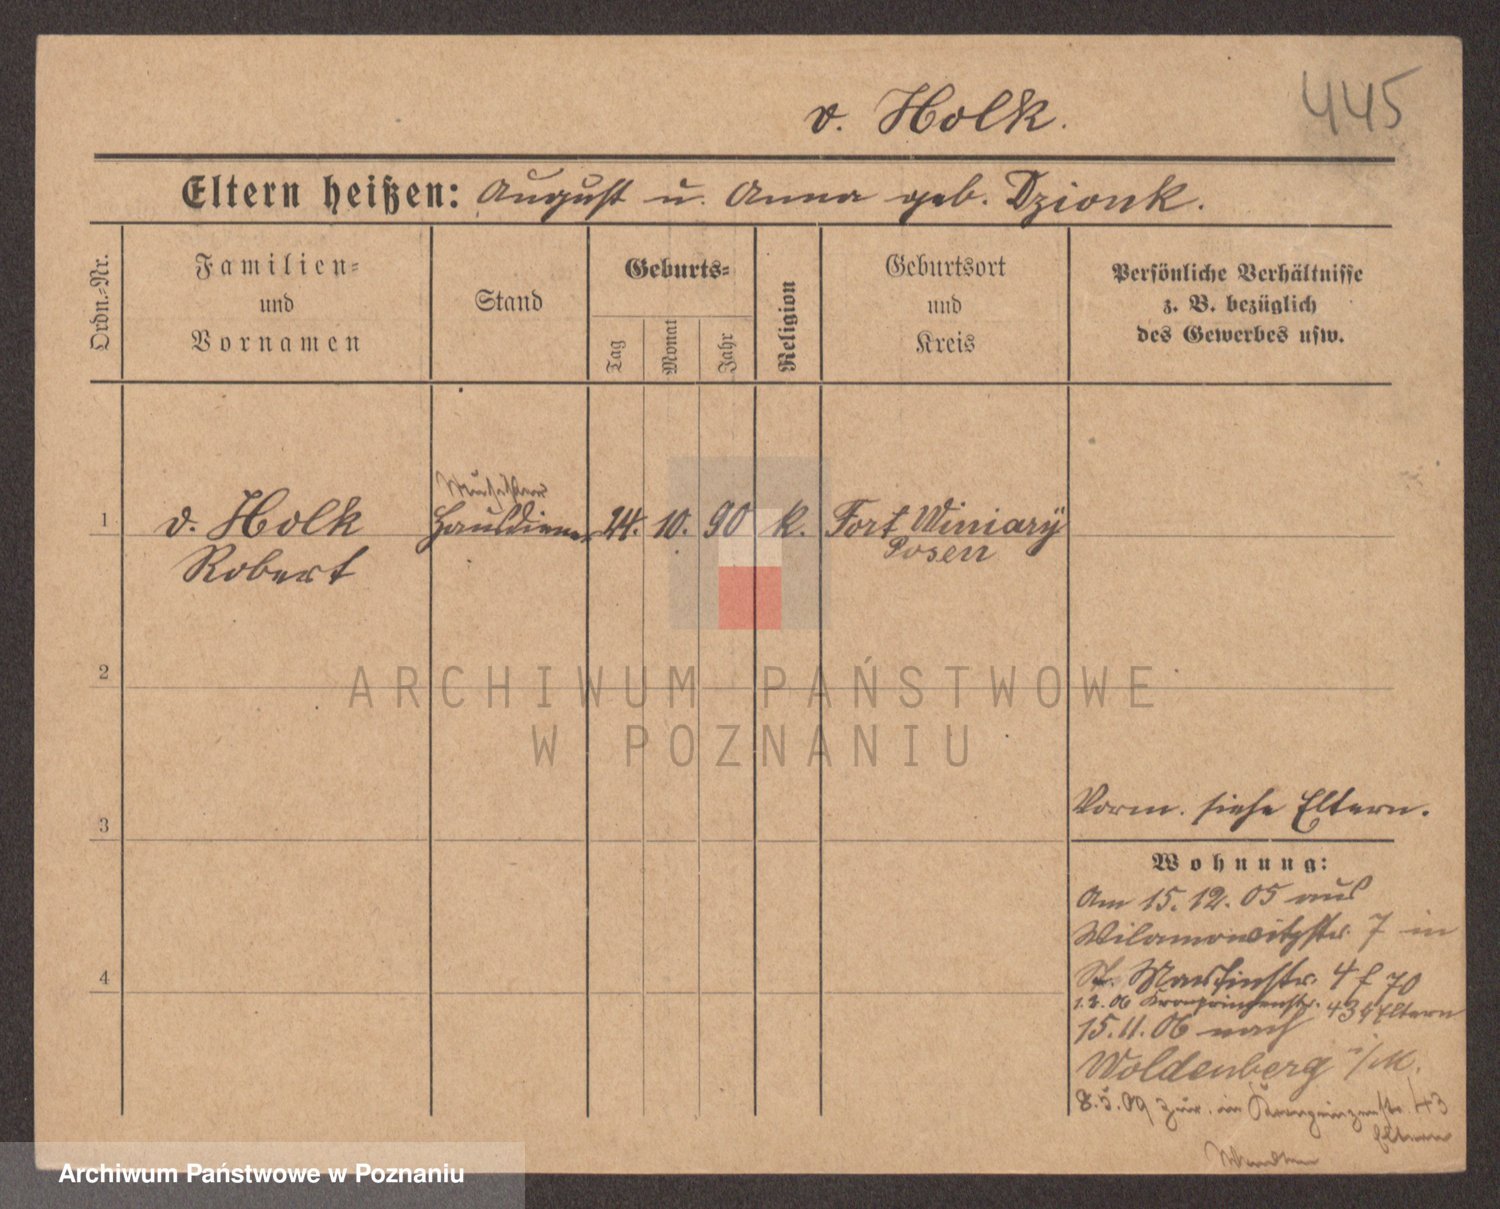 445
v. Holk.
Eltern heißen: August u. Anna geb. Dzionk.
Ordn.=Nr.
Familien=
und
Vornamen
Stand
Geburts=
Tag
Monat
Jahr
Religion
Geburtsort
und
Kreis
Persönliche Verhältnisse
z. B. bezüglich
des Gewerbes usw.
1
v. Holk
Robert
Hausdiener
24. 10. 90
k.
Fort Winiarÿ
Posen
2
ARCHIWUM PAŃSTWOWE
W POZNANIU
3
Vorm. siehe Eltern.
Wohnung:
Am 15. 12. 05 aus
Wilamowitzstr. 7 in
St. Martinstr. 4 f 70
1.3.06 Kronprinzenstr. 43 Eltern
15.11.06 nach
Woldenberg i/M.
4
8.5.09 zur. in Kronprinzenstr. 43
Eltern
Archiwum Państwowe w Poznaniu